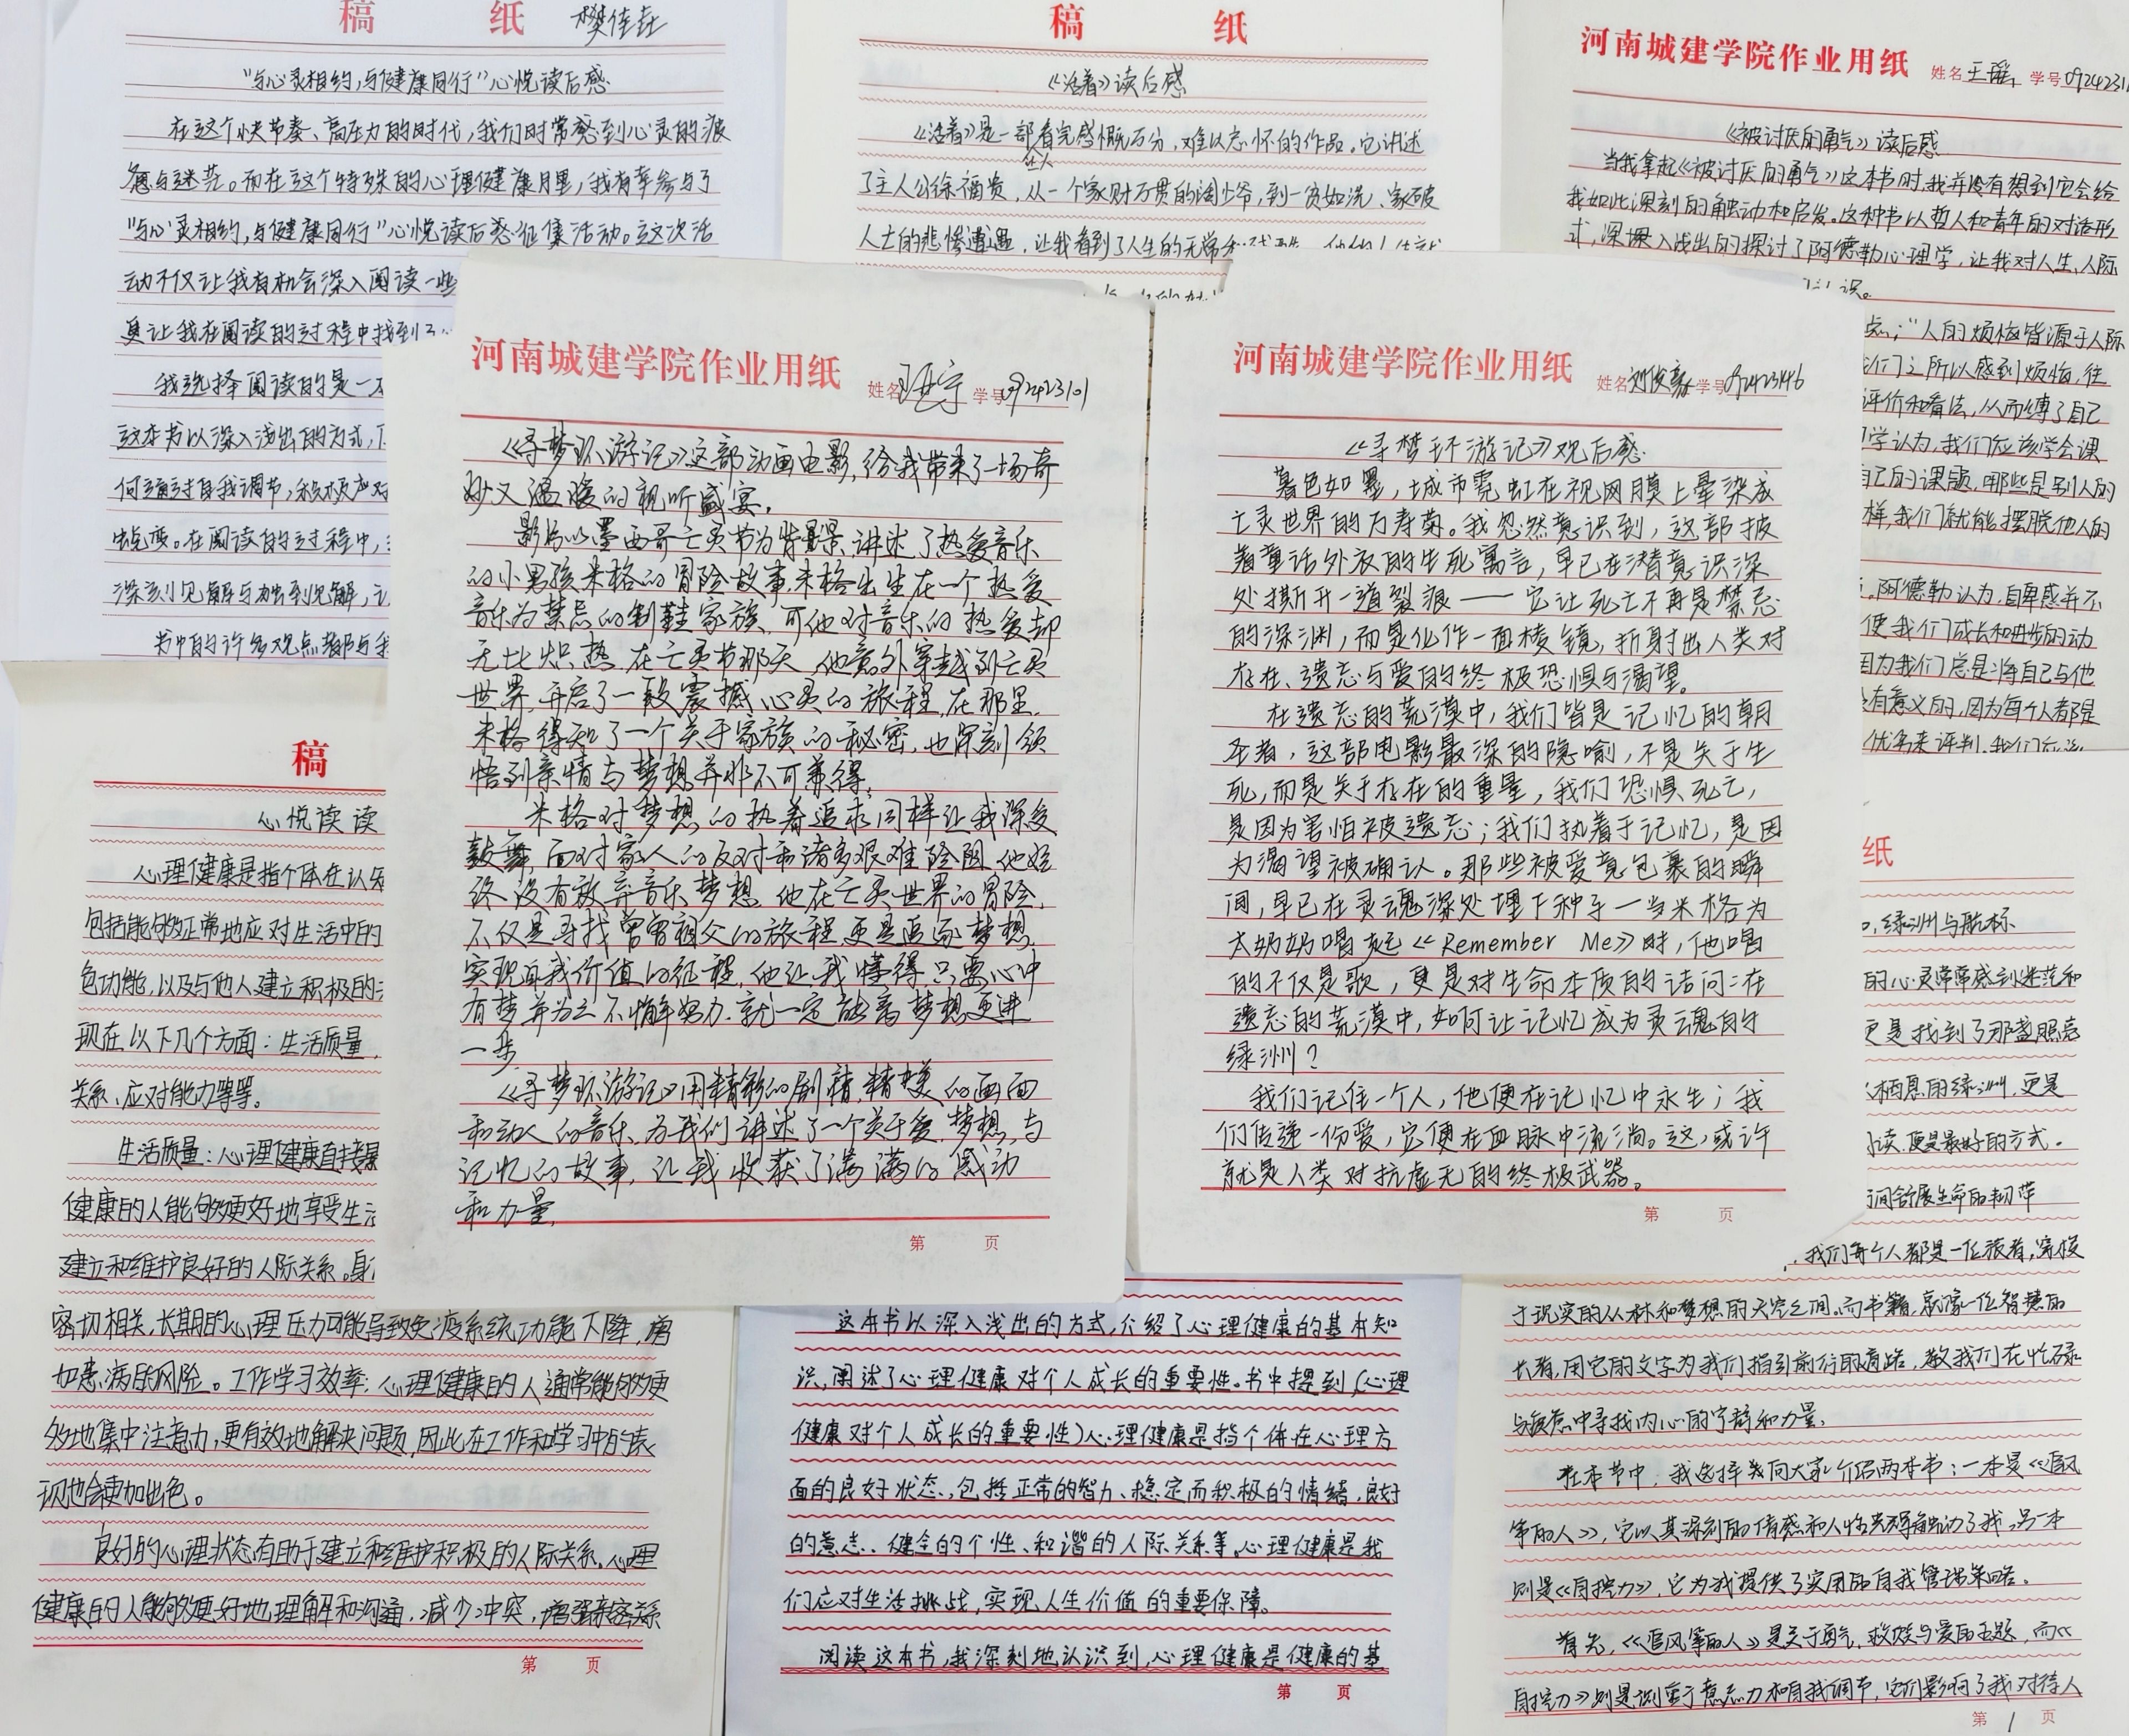 稿 纸 樊佳垚
“与心灵相约,与健康同行”心悦读后感
在这个快节奏、高压力的时代,我们时常感到心灵的疲
惫与迷茫。而在这个特殊的心理健康月里,我有幸参与了
“与心灵相约,与健康同行”心悦读后感征集活动。这次活
动不仅让我有机会深入阅读一些
更让我在阅读的过程中找到了
我选择阅读的是一本
这本书以深入浅出的方式,
何通过自我调节,积极应对
蜕变。在阅读的过程中,
深刻见解与独到见解,让
书中的许多观点都与我
稿 纸
《活着》读后感
《活着》是一部看完感慨万分,难以忘怀的作品。它讲述
了主人公徐福贵,从一个家财万贯的阔少爷,到一贫如洗、家破
人亡的悲惨遭遇,让我看到了人生的无常
河南城建学院作业用纸 姓名 王瑶 学号
《被讨厌的勇气》读后感
当我拿起《被讨厌的勇气》这本书时,我并没有想到它会给
我如此深刻的触动和启发。这种书以哲人和青年的对话形
式,深入浅出的探讨了阿德勒心理学,让我对人生、人际
识。
点:“人的烦恼皆源于人际
们之所以感到烦恼,往
评价和看法,从而缚了自己
学认为,我们应该学会课
自己的课题,哪些是别人的
样,我们就能摆脱他人的
阿德勒认为,自卑感并不
使我们成长和进步的动
因为我们总是将自己与他
有意义的,因为每个人都是
河南城建学院作业用纸 姓名 学号092423101
《寻梦环游记》这部动画电影,给我带来了一场奇
妙又温暖的视听盛宴,
影片以墨西哥亡灵节为背景,讲述了热爱音乐
的小男孩米格的冒险故事,米格出生在一个热爱
音乐为禁忌的制鞋家族,可他对音乐的热爱却
无比炽热,在亡灵节那天,他意外穿越到亡灵
世界,开启了一段震撼心灵的旅程,在那里,
米格得知了一个关于家族的秘密,也深刻领
悟到亲情与梦想并非不可兼得,
米格对梦想的执着追求同样让我深受
鼓舞,面对家人的反对和诸多艰难险阻,他始
终没有放弃音乐梦想,他在亡灵世界的冒险,
不仅是寻找曾曾祖父的旅程,更是追逐梦想,
实现自我价值的征程,他让我懂得,只要心中
有梦并为之不懈努力,就一定能离梦想更进
一步,
《寻梦环游记》用精彩的剧情,精美的画面
和动人的音乐,为我们讲述了一个关于爱,梦想,与
记忆的故事,让我收获了满满的感动
和力量,
第 页
河南城建学院作业用纸 姓名 刘俊豪 学号092423146
《寻梦环游记》观后感
暮色如墨,城市霓虹在视网膜上晕染成
亡灵世界的万寿菊。我忽然意识到,这部披
着童话外衣的生死寓言,早已在潜意识深
处撕开一道裂痕——它让死亡不再是禁忌
的深渊,而是化作一面棱镜,折射出人类对
存在、遗忘与爱的终极恐惧与渴望。
在遗忘的荒漠中,我们皆是记忆的朝
圣者,这部电影最深的隐喻,不是关于生
死,而是关于存在的重量,我们恐惧死亡,
是因为害怕被遗忘;我们执着于记忆,是因
为渴望被确认。那些被爱意包裹的瞬
间,早已在灵魂深处埋下种子—当米格为
太奶奶唱起《Remember Me》时,他唱
的不仅是歌,更是对生命本质的诘问:在
遗忘的荒漠中,如何让记忆成为灵魂的
绿洲?
我们记住一个人,他便在记忆中永生;我
们传递一份爱,它便在血脉中流淌。这,或许
就是人类对抗虚无的终极武器。
第 页
稿
心悦读读
心理健康是指个体在认知
包括能够正常地应对生活中的
包功能,以及与他人建立积极的
现在以下几个方面:生活质量,
关系、应对能力等等。
生活质量:心理健康直接影
健康的人能够更好地享受生活
建立和维护良好的人际关系。身
密切相关,长期的心理压力可能导致免疫系统功能下降,增
加患病的风险。工作学习效率:心理健康的人通常能够更
好地集中注意力,更有效地解决问题,因此在工作和学习中的表
现也会更加出色。
良好的心理状态有助于建立和维护积极的人际关系。心理
健康的人能够更好地理解和沟通,减少冲突,增强亲密关系
第 页
这本书以深入浅出的方式,介绍了心理健康的基本知
识,阐述了心理健康对个人成长的重要性。书中提到(心理
健康对个人成长的重要性)心理健康是指个体在心理方
面的良好状态,包括正常的智力、稳定而积极的情绪,良好
的意志、健全的个性、和谐的人际关系等。心理健康是我
们应对生活挑战,实现人生价值的重要保障。
阅读这本书,我深刻地认识到,心理健康是健康的基
第 页
纸
绿洲与航标
的心灵常常感到迷茫和
更是找到了那盏照亮
栖息的绿洲,更是
读,便是最好的方式。
间舒展生命的韧
我们每个人都是一位旅者,穿梭
于现实的丛林和梦想的天空之间。而书籍,就像一位智慧的
长者,用它的文字为我们指引前行的道路,教我们在忙碌
与疲惫中寻找内心的宁静和力量。
在本节中,我选择为向大家介绍两本书:一本是《追风
筝的人》,它以其深刻的情感和人性光辉触动了我,另一本
则是《自控力》,它为我提供了实用的自我管理策略。
首先,《追风筝的人》是关于勇气,救赎与爱的主题,而《
自控力》则是侧重于意志力和自我调节,它们影响了我对待人
第 1 页